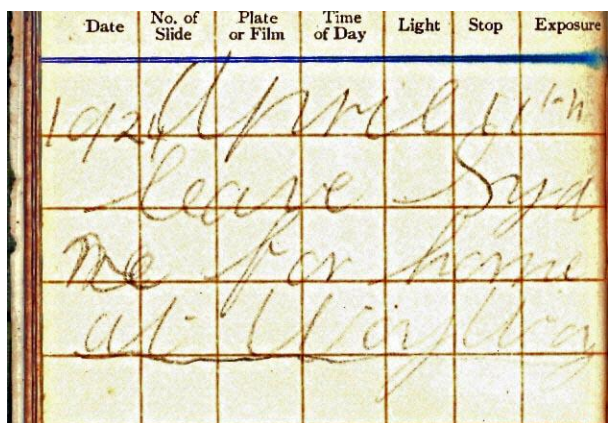 Date No. of Slide Plate or Film Time of Day Light Stop Exposure
April 11th
leave Syd
ne for home
at Woy Woy